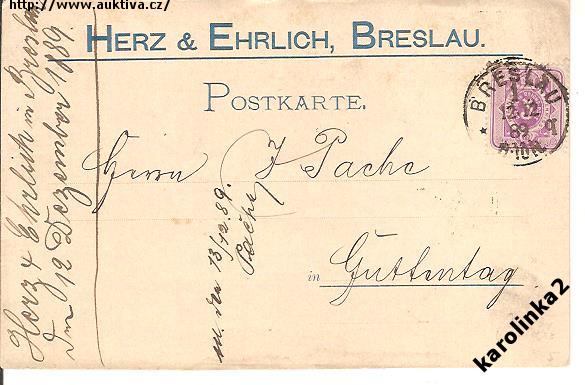 http://www.auktiva.cz/
HERZ & EHRLICH, BRESLAU.
POSTKARTE.
BRESLAU
1
12.12
89
Herrn J Pache
in Guttentag
Herz & Ehrlich in Breslau
den 12 Dezember 1889.
den 13/12.89.
Pache
karolinka2